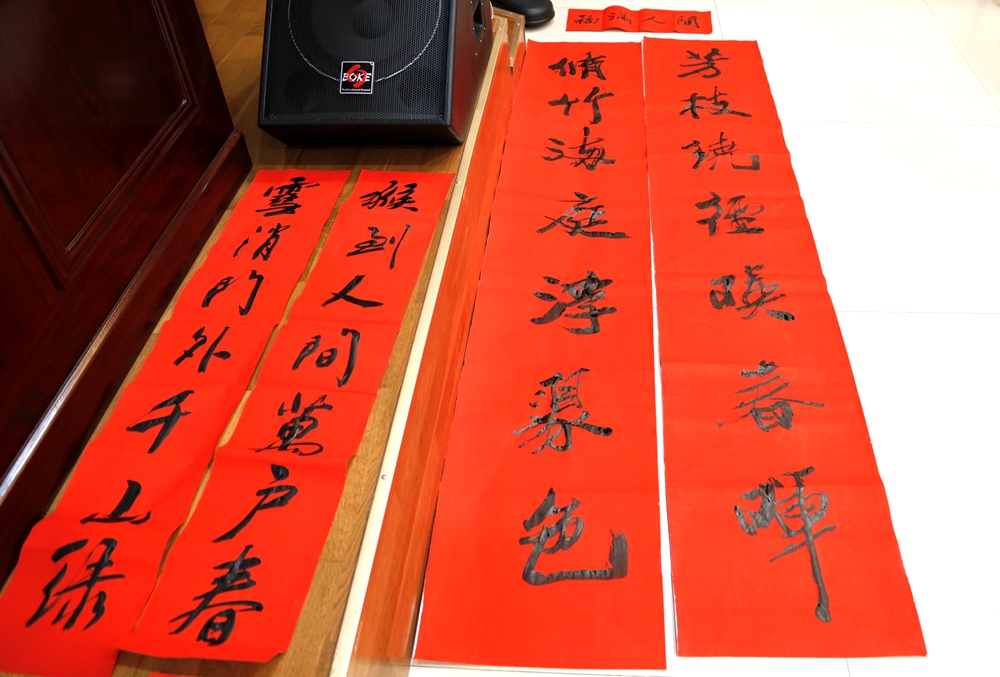 福满人間
芳枝繞徑暎春暉
脩竹海庭翠色
猴到人間萬户春
雪消門外千山緑
BOKE
Professional Sound